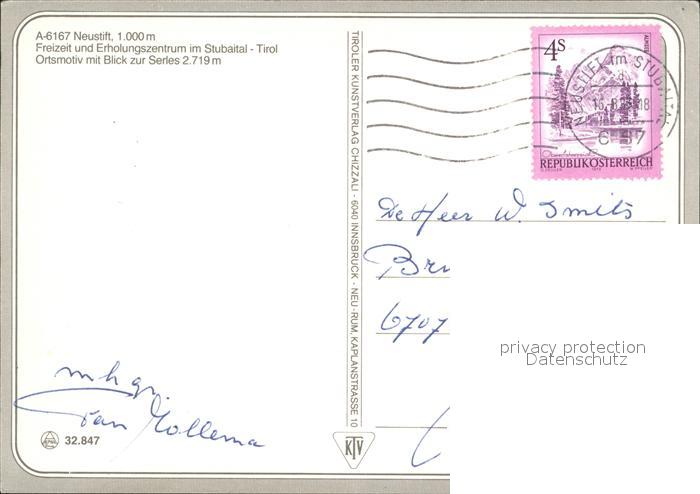 A-6167 Neustift, 1.000 m
Freizeit und Erholungszentrum im Stubaital - Tirol
Ortsmotiv mit Blick zur Serles 2.719 m
TIROLER KUNSTVERLAG CHIZZALI - 6040 INNSBRUCK - NEU-RUM, KAPLANSTRASSE 10
4S
NEUSTIFT im STUBAITAL
REPUBLIK ÖSTERREICH
De Heer W. Smits
6707
privacy protection
Datenschutz
m h gr.
Jan Hollema
32.847
KTV